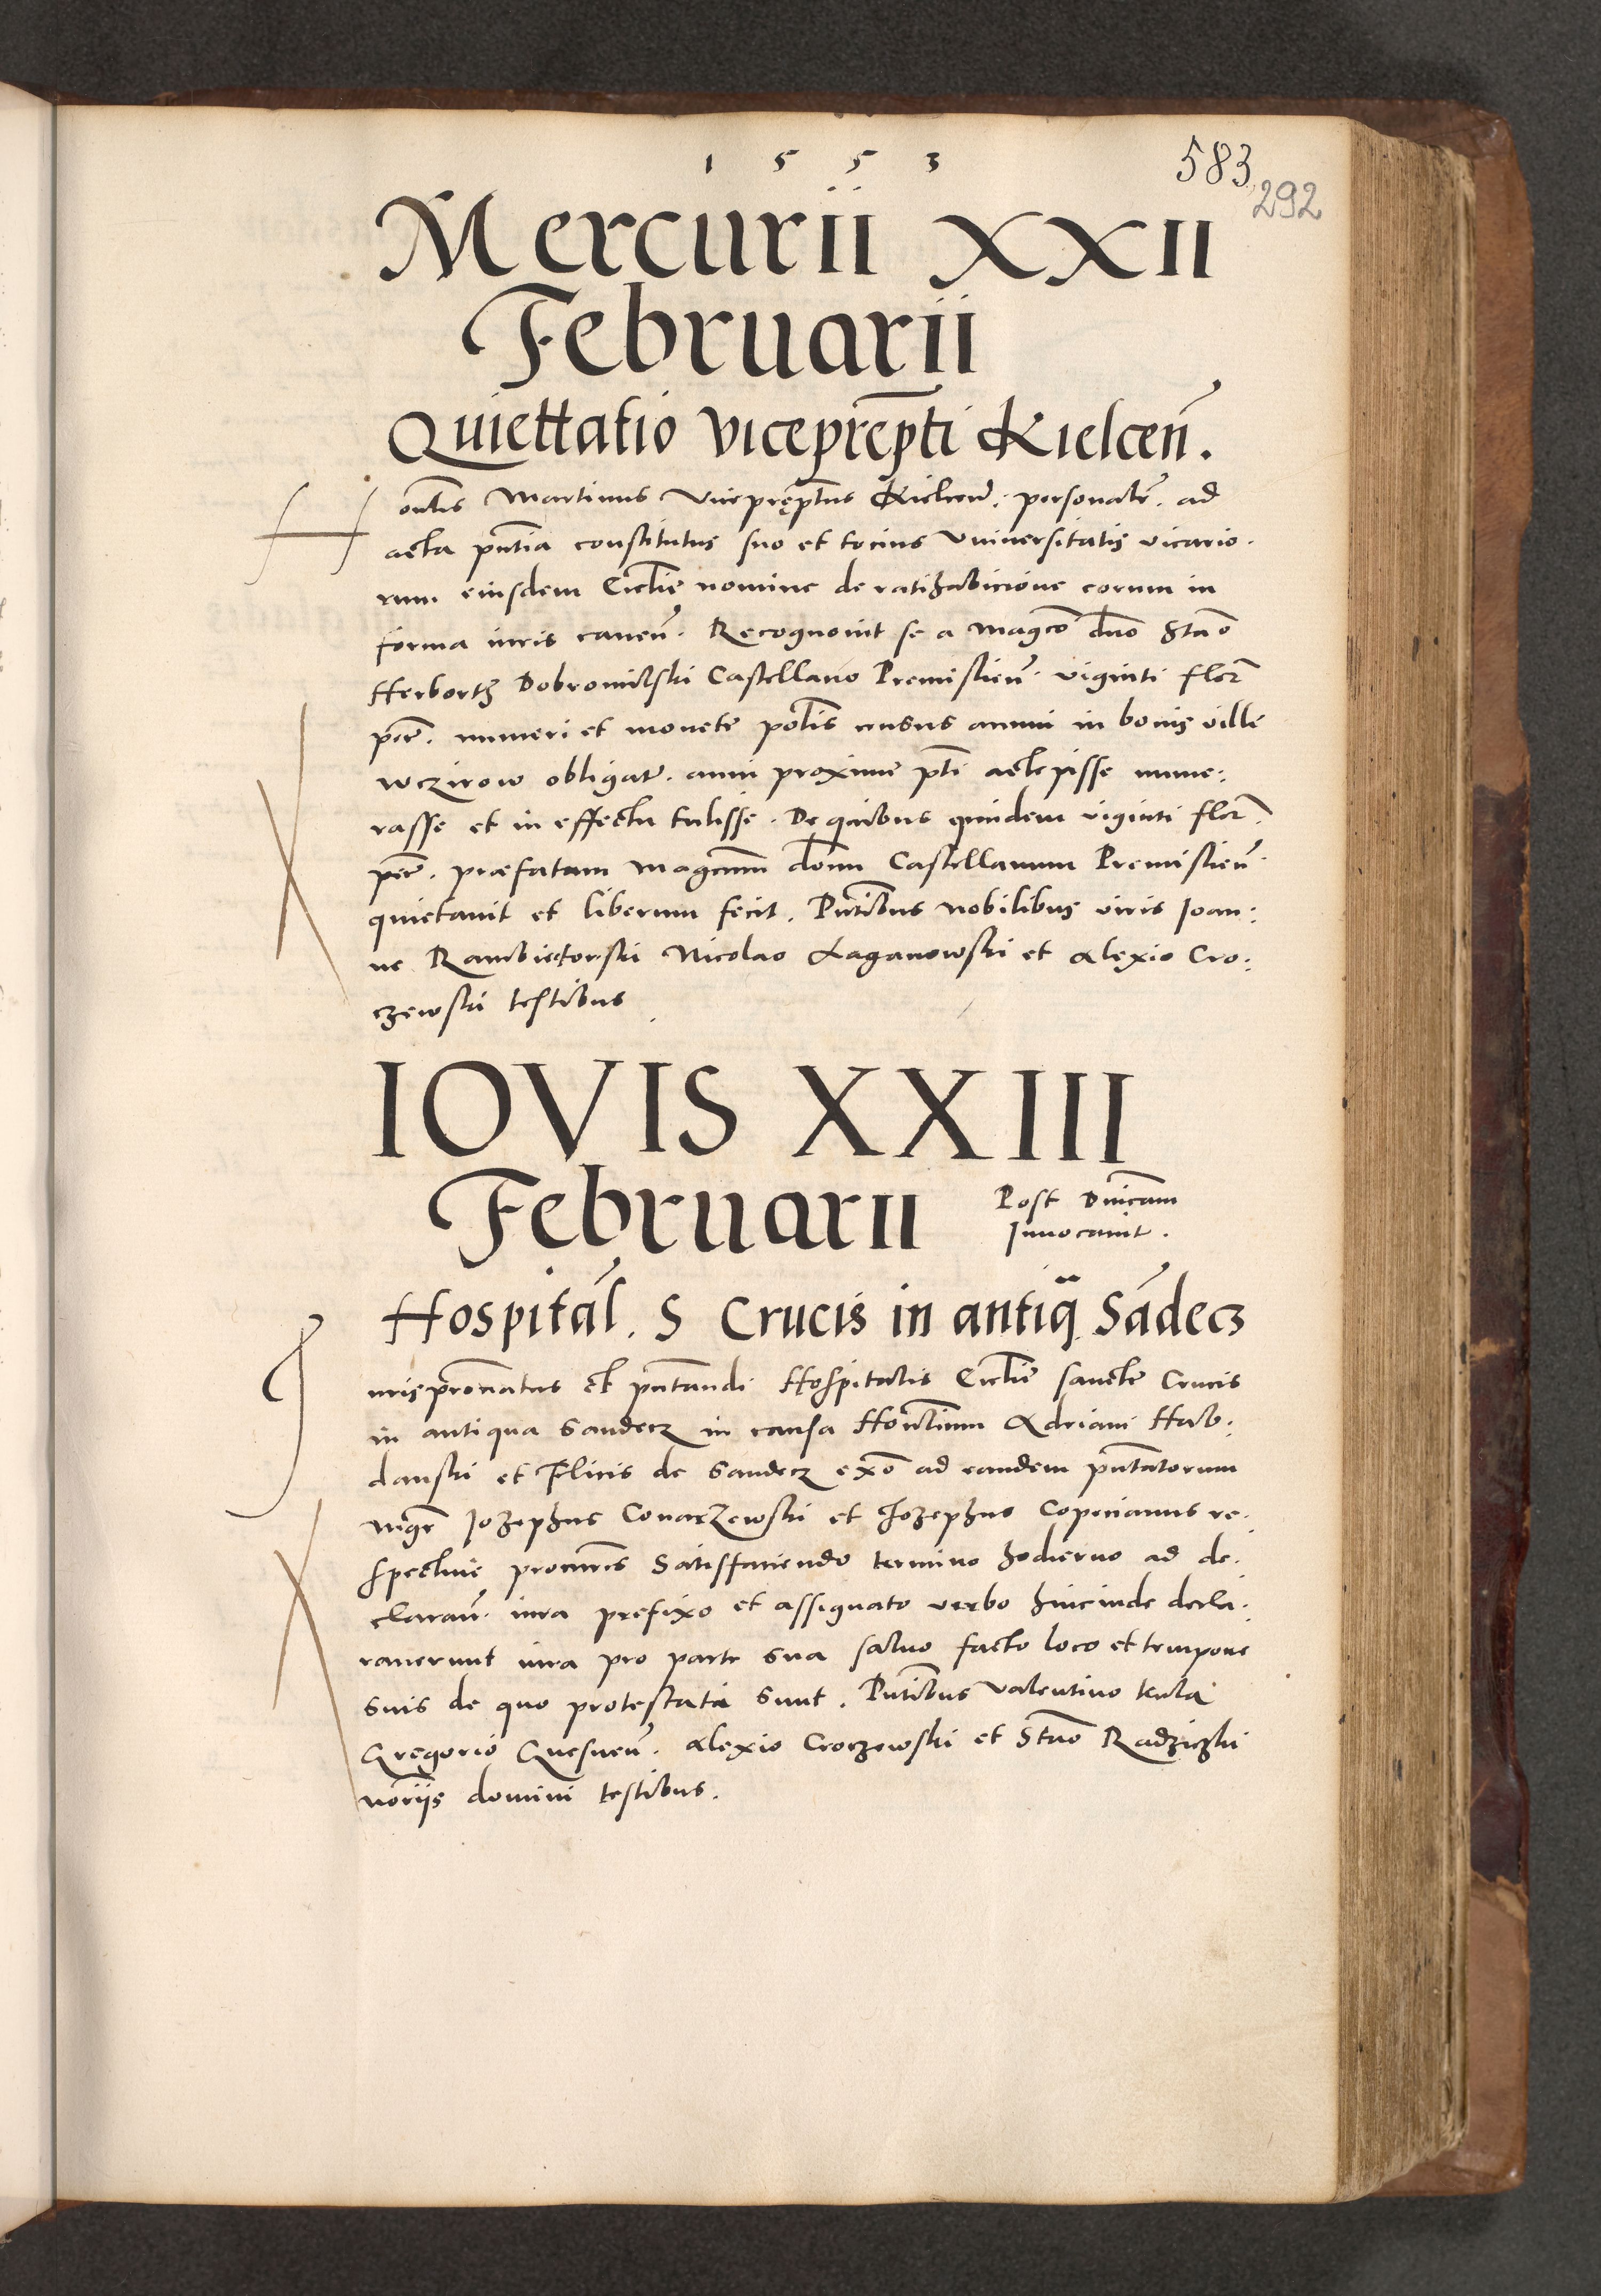 1 5 5 3
583
292
Mercurii XXII
Februarii
Quiettatio viceprepti Kielcen.
Honblis Martinus Vicepreptus Kielcen. personalr. ad
acta pntia constitutus suo et tocius Vniuersitatis vicario.
rum eiusdem Ecclie nomine de ratihabicione eorum in
forma iuris cauen. Recognouit se a Magco dno Stao
Herborth Dobromilski Castellano Premislien. viginti flor
per. numeri et monete polis census annui in bonis ville
obligat. anni proxime pti accepisse nume:
rasse et in effectu tulisse. De quibus quidem viginti flor.
per. prefatum Magcum dnm Castellanum Premislien.
quietauit et liberum fecit. Pntibus nobilibus viris Ioan:
ne Nicolao Laganowski et Alexio Cro:
czewski testibus
IOVIS XXIII
Februarii
Post Dnicam
Inuocauit.
Hospital. S Crucis in antiq Sadecz
Iurispronatus et pntandi Hospitalis Ecclie sancte Crucis
in antiqua Sandecz in causa Honblium Adriani Hab:
danski et Felicis de Sandecz exo ad eandem pntatorum
mgr Iozephus Conarzewski et Iozephus Copecianus re:
spectiue procuris Satisfaciendo termino hodierno ad de:
claran. iura prefixo et assignato verbo hincinde decla:
rauerunt iura pro parte sua saluo facto loco et tempore
suis de quo protestati sunt. Pntibus Valentino
Gregorio Gnesnen. Alexio Croczewski et Stao Radziczki
noriis domini testibus.